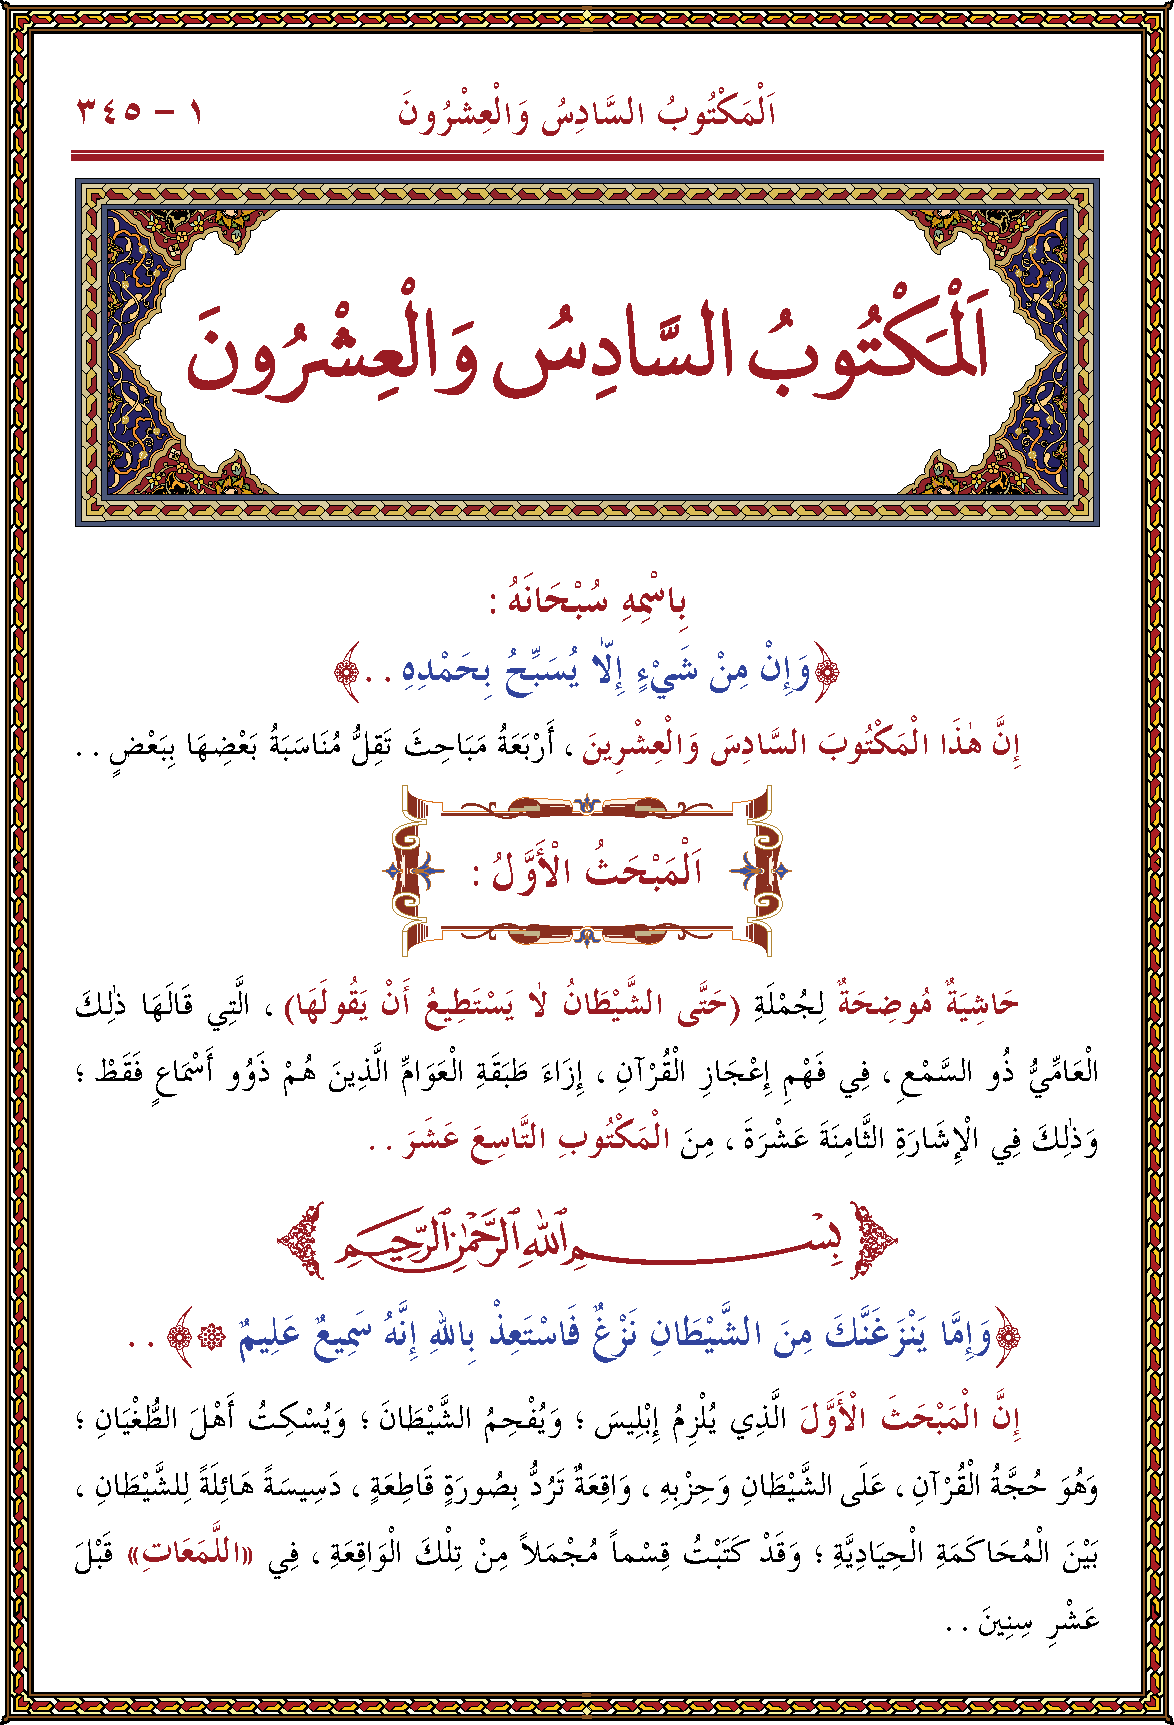 اَلْمَكْتُوبُ السَّادِسُ وَالْعِشْرُونَ ١ – ٣٤٥
اَلْمَكْتُوبُ السَّادِسُ وَالْعِشْرُونَ
بِاسْمِهِ سُبْحَانَهُ :
﴿وَإِنْ مِنْ شَيْءٍ إِلَّا يُسَبِّحُ بِحَمْدِهِ . . ﴾
إِنَّ هٰذَا الْمَكْتُوبَ السَّادِسَ وَالْعِشْرِينَ ، أَرْبَعَةُ مَبَاحِثَ تَقِلُّ مُنَاسَبَةُ بَعْضِهَا بِبَعْضٍ . .
اَلْمَبْحَثُ الْأَوَّلُ :
حَاشِيَةٌ مُوضِحَةٌ لِجُمْلَةِ (حَتَّى الشَّيْطَانُ لَا يَسْتَطِيعُ أَنْ يَقُولَهَا) ، الَّتِي قَالَهَا ذٰلِكَ
الْعَامِّيُّ ذُو السَّمْعِ ، فِي فَهْمِ إِعْجَازِ الْقُرْآنِ ، إِزَاءَ طَبَقَةِ الْعَوَامِّ الَّذِينَ هُمْ ذَوُو أَسْمَاعٍ فَقَطْ ؛
وَذٰلِكَ فِي الْإِشَارَةِ الثَّامِنَةَ عَشْرَةَ ، مِنَ الْمَكْتُوبِ التَّاسِعَ عَشَرَ . .
بِسْمِ اللهِ الرَّحْمٰنِ الرَّحِيمِ
﴿وَإِمَّا يَنْزَغَنَّكَ مِنَ الشَّيْطَانِ نَزْغٌ فَاسْتَعِذْ بِاللهِ إِنَّهُ سَمِيعٌ عَلِيمٌ ۞﴾ . .
إِنَّ الْمَبْحَثَ الْأَوَّلَ الَّذِي يُلْزِمُ إِبْلِيسَ ؛ وَيُفْحِمُ الشَّيْطَانَ ؛ وَيُسْكِتُ أَهْلَ الطُّغْيَانِ ؛
وَهُوَ حُجَّةُ الْقُرْآنِ ، عَلَى الشَّيْطَانِ وَحِزْبِهِ ، وَاقِعَةٌ تَرُدُّ بِصُورَةٍ قَاطِعَةٍ ، دَسِيسَةً هَائِلَةً لِلشَّيْطَانِ ،
بَيْنَ الْمُحَاكَمَةِ الْحِيَادِيَّةِ ؛ وَقَدْ كَتَبْتُ قِسْماً مُجْمَلاً مِنْ تِلْكَ الْوَاقِعَةِ ، فِي «اللَّمَعَاتِ» قَبْلَ
عَشْرِ سِنِينَ . .